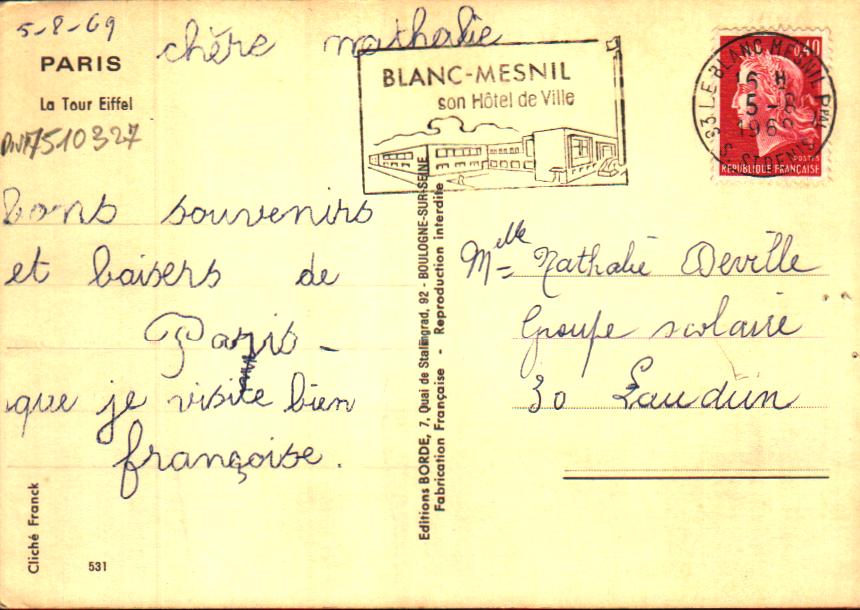 5-8-69
PARIS
La Tour Eiffel
7510327
chère nathalie
bons souvenirs
et baisers de
Paris -
que je visite bien
françoise.
BLANC-MESNIL
son Hôtel de Ville
93 LE BLANC MESNIL PPAL
16 H
5-8
1969
S. ST DENIS
0,40
POSTES
REPUBLIQUE FRANÇAISE
Editions BORDE, 7, Quai de Stalingrad, 92 - BOULOGNE-SUR-SEINE
Fabrication Française - Reproduction interdite
Melle Nathalie Deville
Groupe scolaire
30 Laudun
Cliché Franck
531